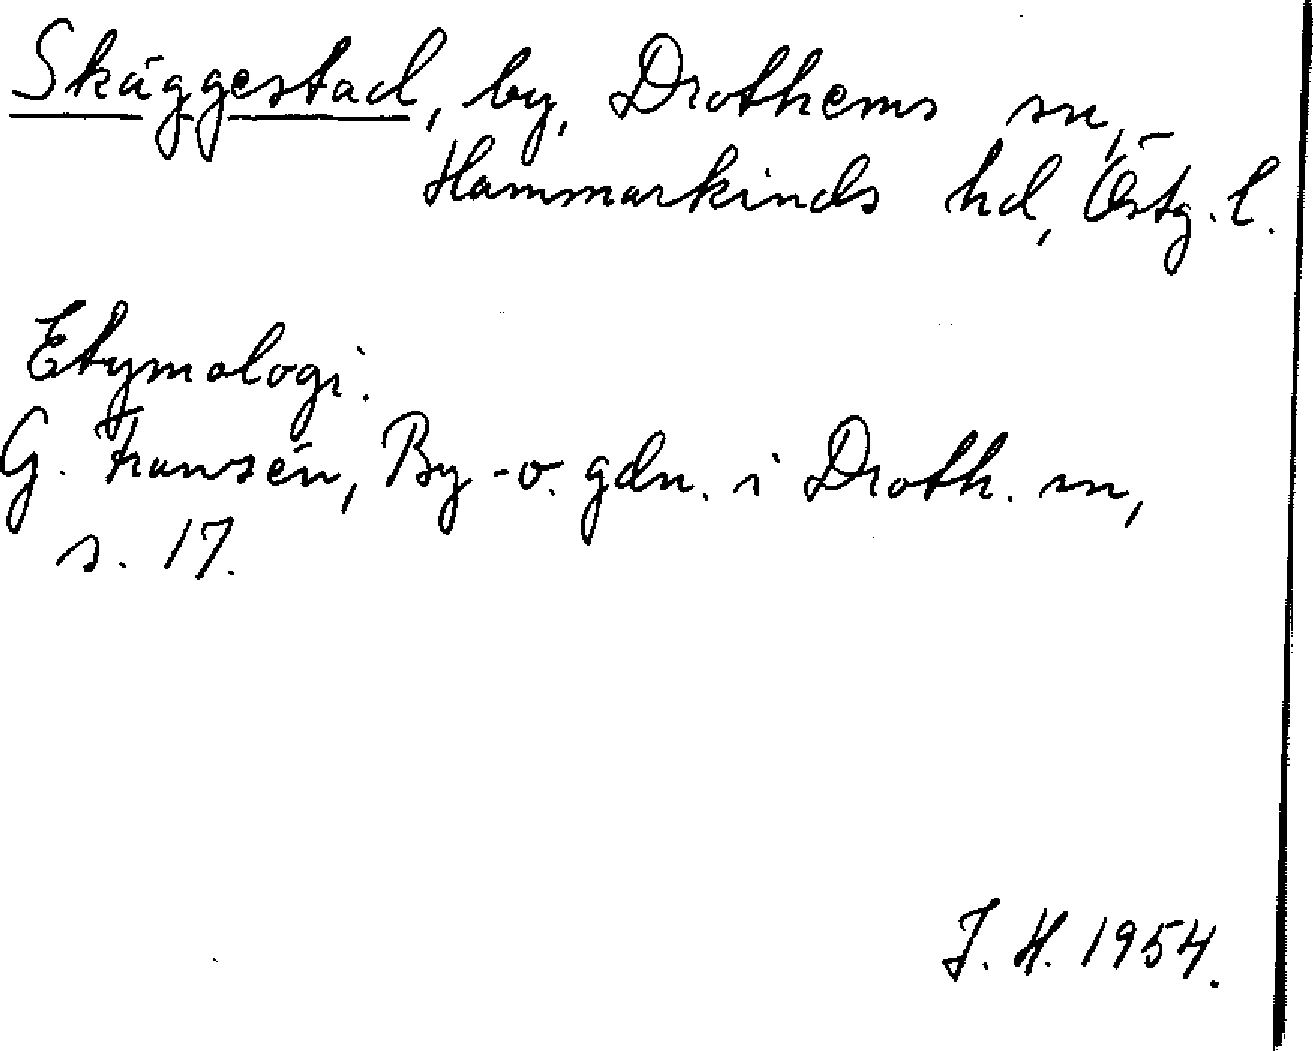 Skäggestad, by, Drothems sn,
Hammarkinds hd, Östg. l.
Etymologi.
G. Fransén, By- o. gdn. i Droth. sn,
s. 17.
J. H. 1954.